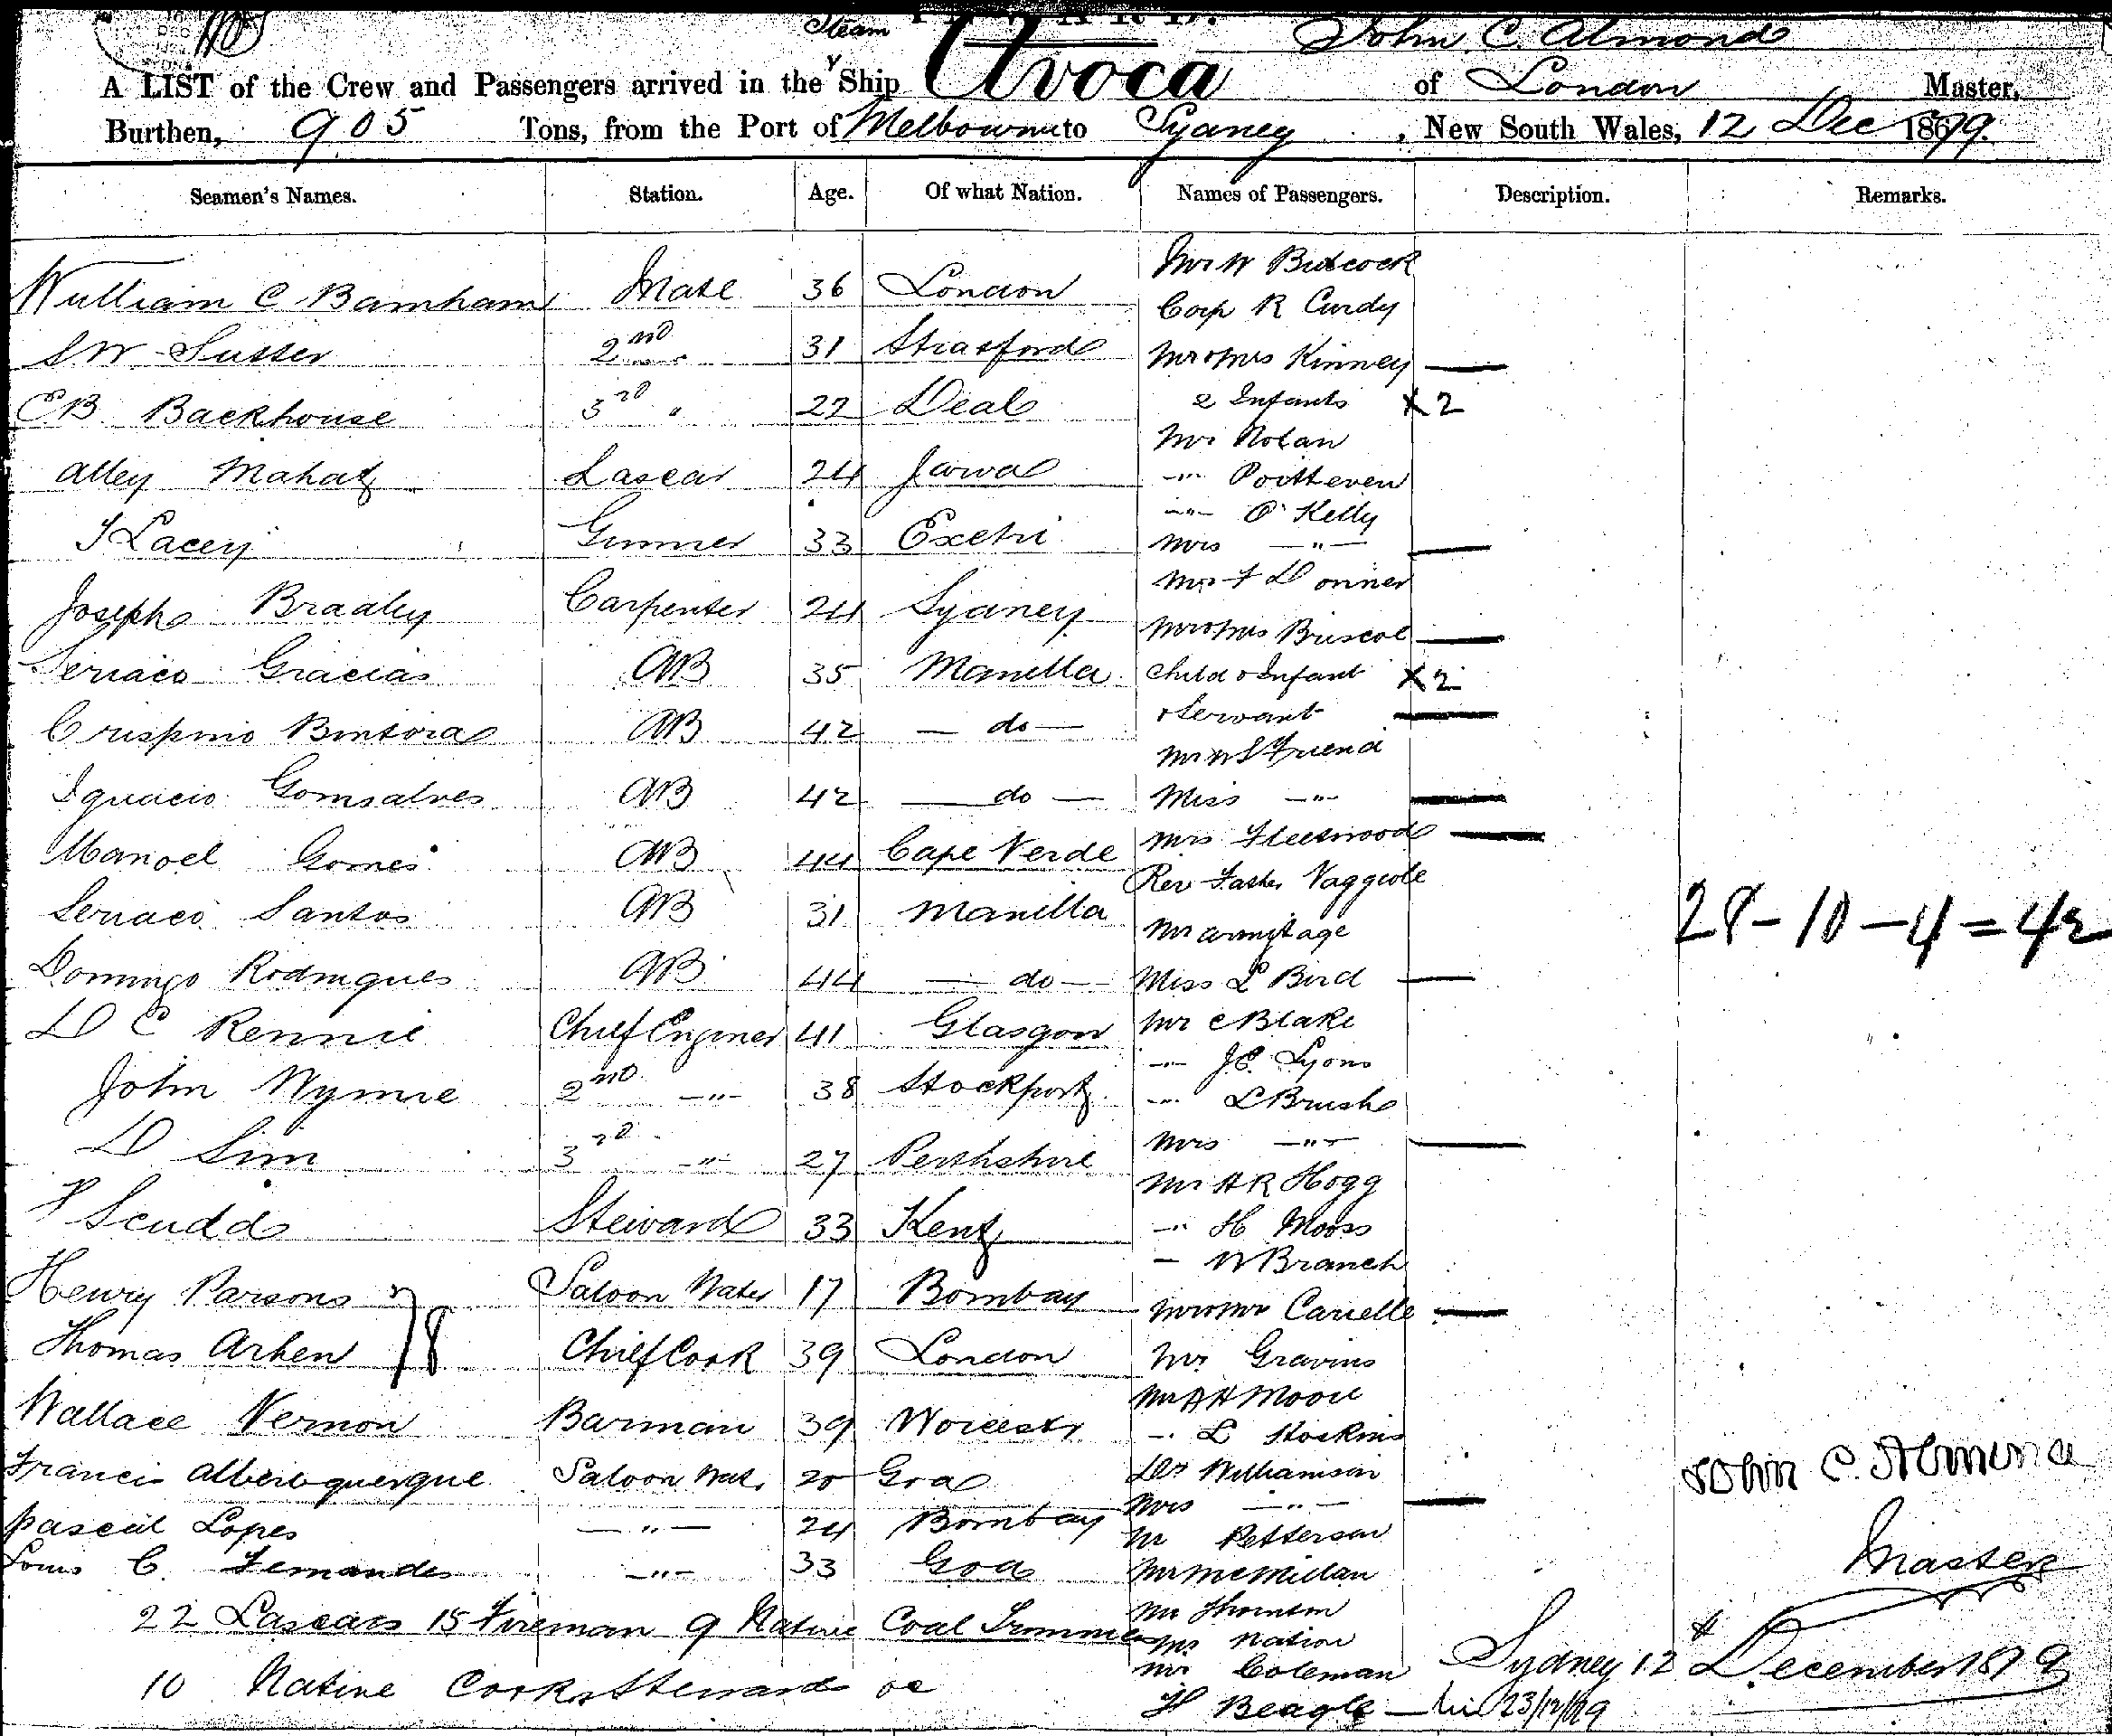 Steam
John C. Almond
A LIST of the Crew and Passengers arrived in the Ship Avoca of London Master,
Burthen, 905 Tons, from the Port of Melbourne to Sydney, New South Wales, 12 Dec 1879.
Seamen's Names. Station. Age. Of what Nation. Names of Passengers. Description. Remarks.
William C Barnham Mate 36 London
S W Susser 2nd " 31 Stratford
E B Backhouse 3rd " 22 Deal
Alley Mahat Lascar 24 Java
J Lacey Gunner 33 Exeter
Joseph Bradley Carpenter 24 Sydney
Seriaco Gracias AB 35 Manilla
Crispino Bintora AB 42 — do —
Ignacio Gomsalves AB 42 — do —
Manoel Gomes AB 44 Cape Verde
Seriaco Santos AB 31 Manilla
Domingo Rodrigues AB 44 — do —
D C Rennie Chief Engineer 41 Glasgow
John Wymie 2nd —"— 38 Stockport
D Sim 3rd —"— 27 Perthshire
P Scudd Steward 33 Kent
Henry Parsons Saloon Waiter 17 Bombay
Thomas Arken Chief Cook 39 London
78
Wallace Vernon Barman 39 Worcester
Francis Alberoquerque Saloon Wat. 20 Goa
Pascal Lopes —"— 24 Bombay
Louis C. Fernandes —"— 33 Goa
22 Lascars 15 Fireman 9 Native Coal Trimmers
10 Native Cooks Steward &c
Mr W Butcock
Corp R Curdy
Mr & Mrs Kinney —
2 Infants X2
Mr Nolan
—"— Poitteven
—"— O'Kelly
Mrs —"— —
Mr F Donner
Mr & Mrs Briscoe —
Child & Infant X2
& Servant —
Mr W S Friend
Miss —"— —
Mrs Fleetwood —
Rev Father Vaggiole
Mr Armitage
Miss L Bird —
Mr C Blake
—"— J E Lyons
—"— L Brush
Mrs —"— —
Mr A R Hogg
—"— H Mooss
— W Branch
Mr & Mrs Carielle —
Mr Gravins
Mr A H Moore
—"— L Hoskins
Dr Williamson
Mrs —"— —
Mr Petterson
Mr McMillan
Mr Thornton
Mr Nation
Mr Coleman
H Beagle
28 – 10 – 4 = 42
John C. Almond
Master
Sydney 12th December 1879
23/12/79